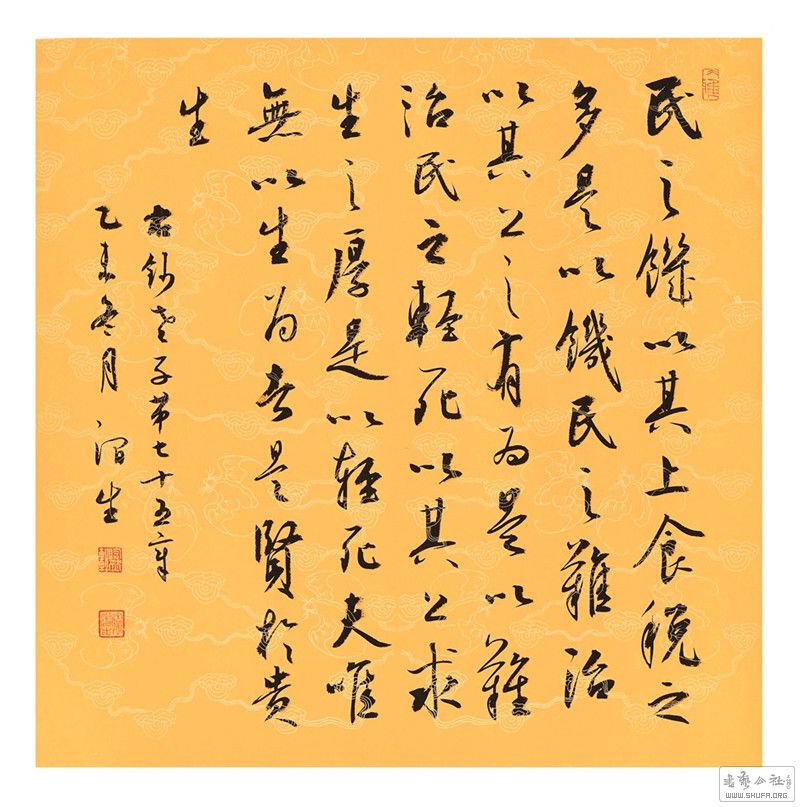 民之饑以其上食稅之
多是以饑民之難治
以其上之有為是以難
治民之輕死以其上求
生之厚是以輕死夫唯
無以生為者是賢於貴
生
右鈔老子第七十五章
乙未冬月 生
書藝公社
WWW.SHUFA.ORG